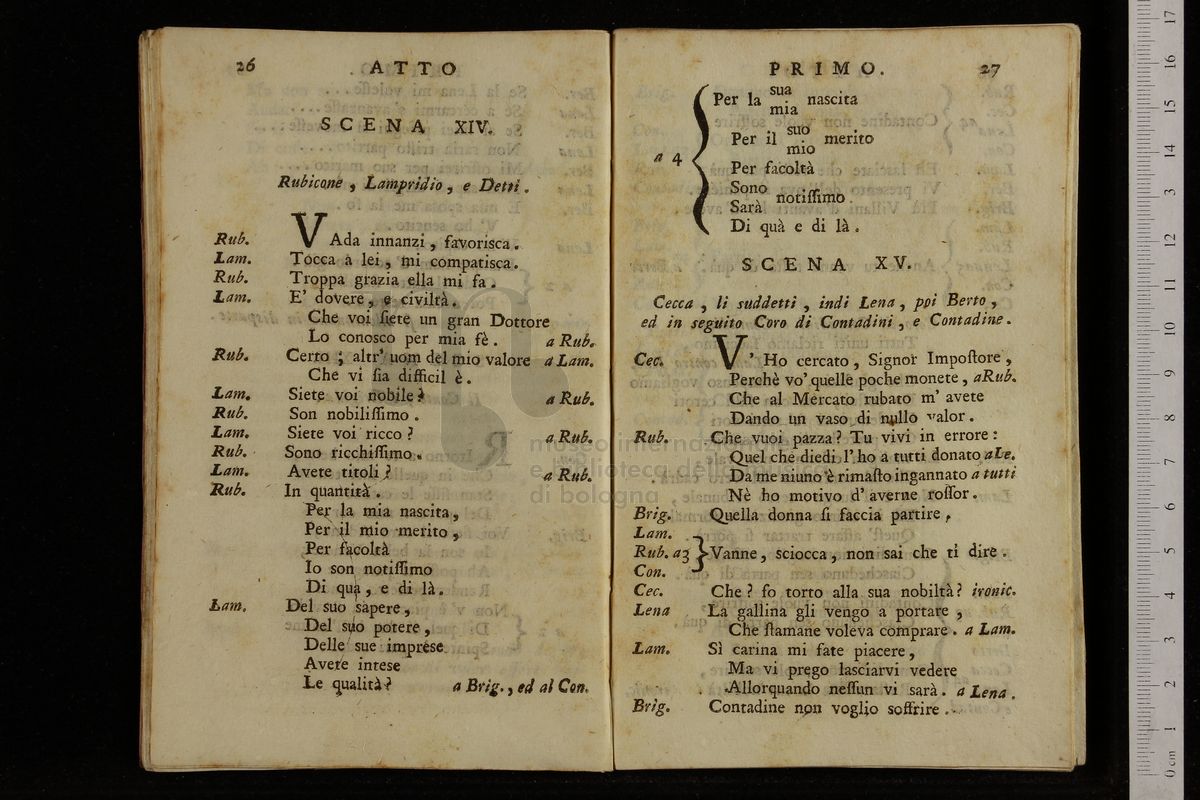 26 ATTO
SCENA XIV.
Rubicone, Lampridio, e Detti.
Rub. VAda innanzi, favorisca.
Lam. Tocca a lei, mi compatisca.
Rub. Troppa grazia ella mi fa.
Lam. E' dovere, e civiltà.
Che voi siete un gran Dottore
Lo conosco per mia fè. a Rub.
Rub. Certo; altr' uom del mio valore a Lam.
Che vi sia difficil è.
Lam. Siete voi nobile? a Rub.
Rub. Son nobilissimo.
Lam. Siete voi ricco? a Rub.
Rub. Sono ricchissimo.
Lam. Avete titoli? a Rub.
Rub. In quantità.
Per la mia nascita,
Per il mio merito,
Per facoltà
Io son notissimo
Di quà, e di là.
Lam. Del suo sapere,
Del suo potere,
Delle sue imprese
Avete intese
Le qualità? a Brig., ed al Con.
PRIMO. 27
a 4
Per la sua mia nascita
Per il suo mio merito
Per facoltà
Sono Sarà notissimo
Di quà e di là.
SCENA XV.
Cecca, li suddetti, indi Lena, poi Berto,
ed in seguito Coro di Contadini, e Contadine.
Cec. V' Ho cercato, Signor Impostore,
Perchè vo' quelle poche monete, a Rub.
Che al Mercato rubato m' avete
Dando un vaso di nullo valor.
Rub. Che vuoi pazza? Tu vivi in errore:
Quel che diedi l' ho a tutti donato a Le.
Da me niuno è rimasto ingannato a tutti
Nè ho motivo d' averne rossor.
Brig. Quella donna si faccia partire,
Lam.
Rub. a3 Vanne, sciocca, non sai che ti dire.
Con.
Cec. Che? fo torto alla sua nobiltà? ironic.
Lena La gallina gli vengo a portare,
Che stamane voleva comprare. a Lam.
Lam. Sì carina mi fate piacere,
Ma vi prego lasciarvi vedere
Allorquando nessun vi sarà. a Lena.
Brig. Contadine non voglio soffrire.
museo internazionale
e biblioteca della musica
di bologna